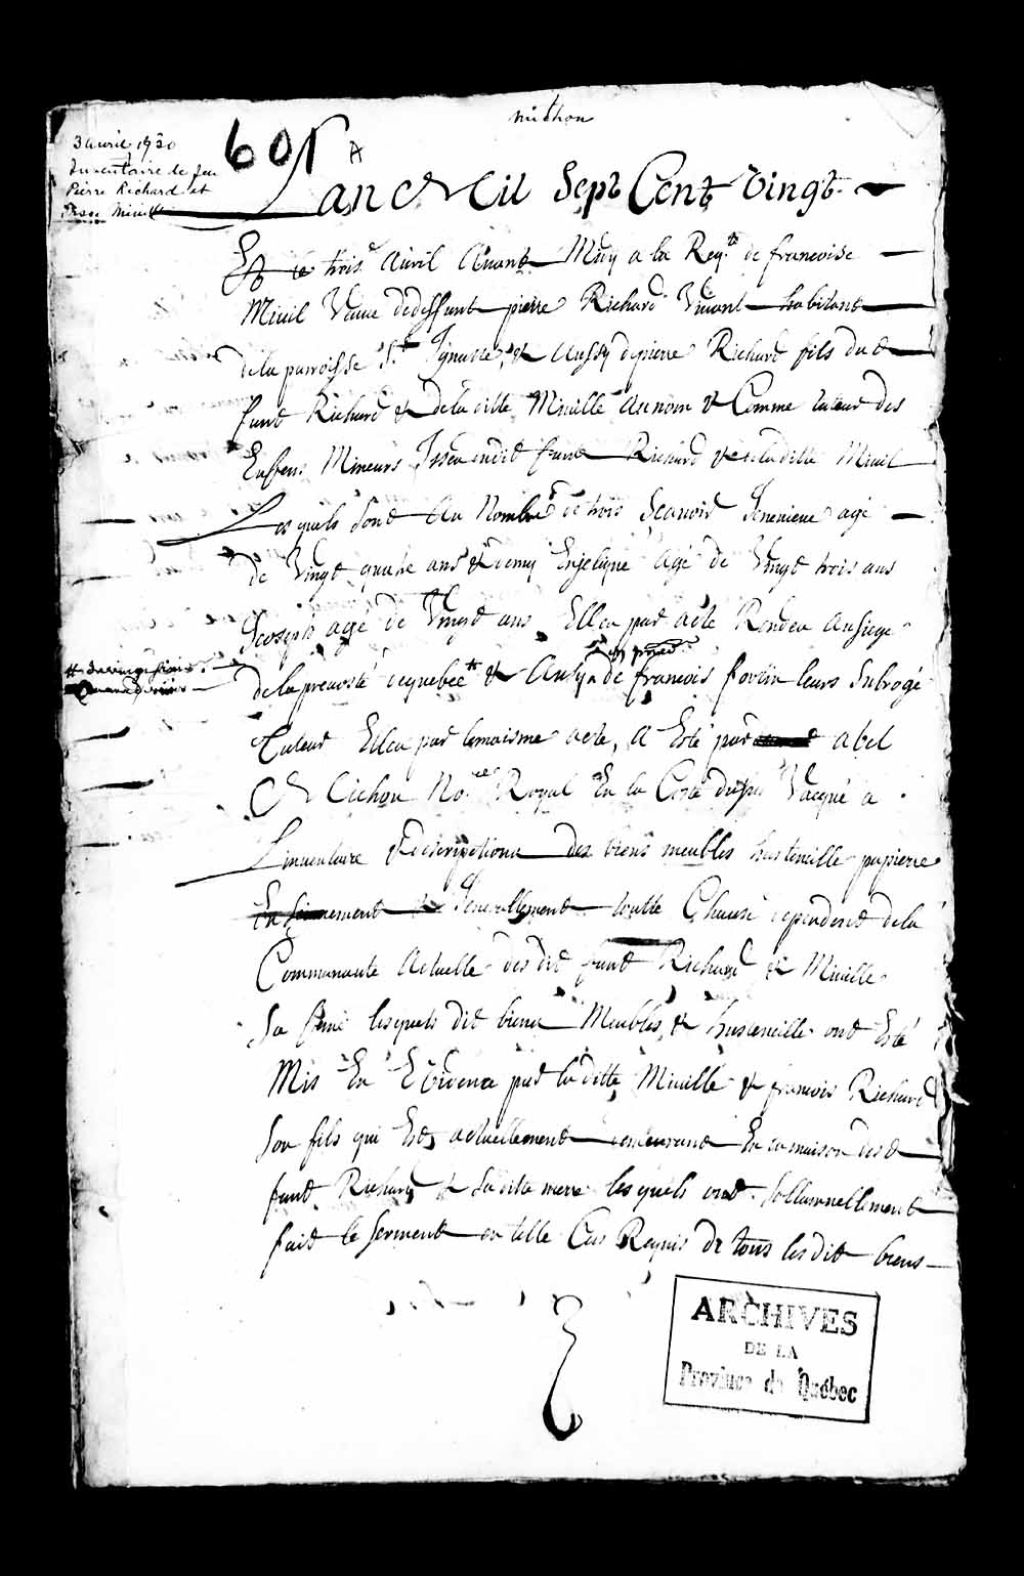 michon
3 avril 1720
Inventaire de feu
Pierre Richard et
Miville
601 A
Lan Mil Sept Cent Vingt
Et le trois avril avant Midy a la Reqte de francoise
Mivil Veuve dedeffunt pierre Richard Vivant habitant
dela parroisse St Ignasse & aussy depierre Richard fils dud
funt Richard & dela ditte Miville au nom & Comme tuteur des
Enffens Mineurs Isseu dudit funt Richard & dela ditte Mivil
Lesquels sont au Nombre de trois Scavoir Jenevieve agé
de Vingt quatre ans & demy Enjelique agé de Vingt trois ans
Joseph agé de Vingt ans Elleu par acte Rendeu au siege
dela prevosté de quebec & Ausy de francois forbin leurs Subrogé
Tuteur Elleu par lemaisme acte, A Esté par abel
Michon Nore Royal En la Coste du Sud Vacqué a
Linventaire & description des biens meubles hustencille papiers
Enseinement & Jenerallement toutte Chause dependent dela
Communauté Actuelle desdit funt Richard & Miville
Sa feme lesquels dit biens Meubles & hustencille ont Esté
Mis En Evidence par la ditte Miville & francois Richard
Son fils qui Est actuellement demeurant En la maison dud
funt Richard & Sa dite mere lesquels ont Sollamnellement
fait le serment en telle Cas Requis de tous lesdit biens
ARCHIVES
DE LA
Province de Québec